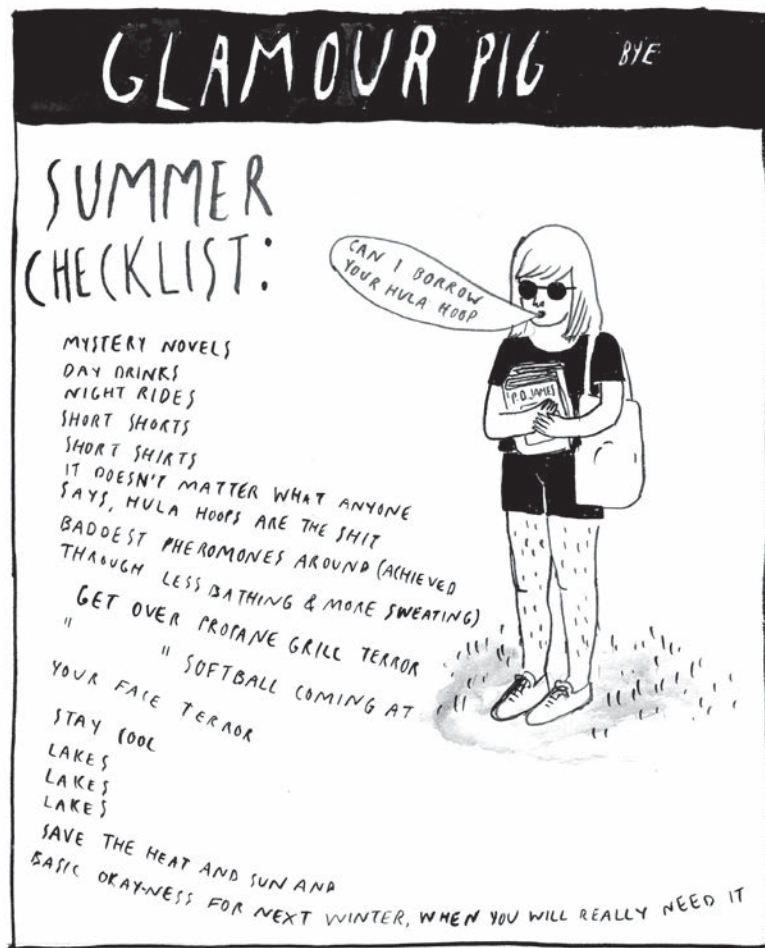 GLAMOUR PIG BYE
SUMMER
CHECKLIST:
CAN I BORROW
YOUR HULA HOOP
P.D. JAMES
MYSTERY NOVELS
DAY DRINKS
NIGHT RIDES
SHORT SHORTS
SHORT SHIRTS
IT DOESN'T MATTER WHAT ANYONE
SAYS, HULA HOOPS ARE THE SHIT
BADDEST PHEROMONES AROUND (ACHIEVED
THROUGH LESS BATHING & MORE SWEATING)
GET OVER PROPANE GRILL TERROR
" " SOFTBALL COMING AT
YOUR FACE TERROR
STAY COOL
LAKES
LAKES
LAKES
SAVE THE HEAT AND SUN AND
BASIC OKAY-NESS FOR NEXT WINTER, WHEN YOU WILL REALLY NEED IT